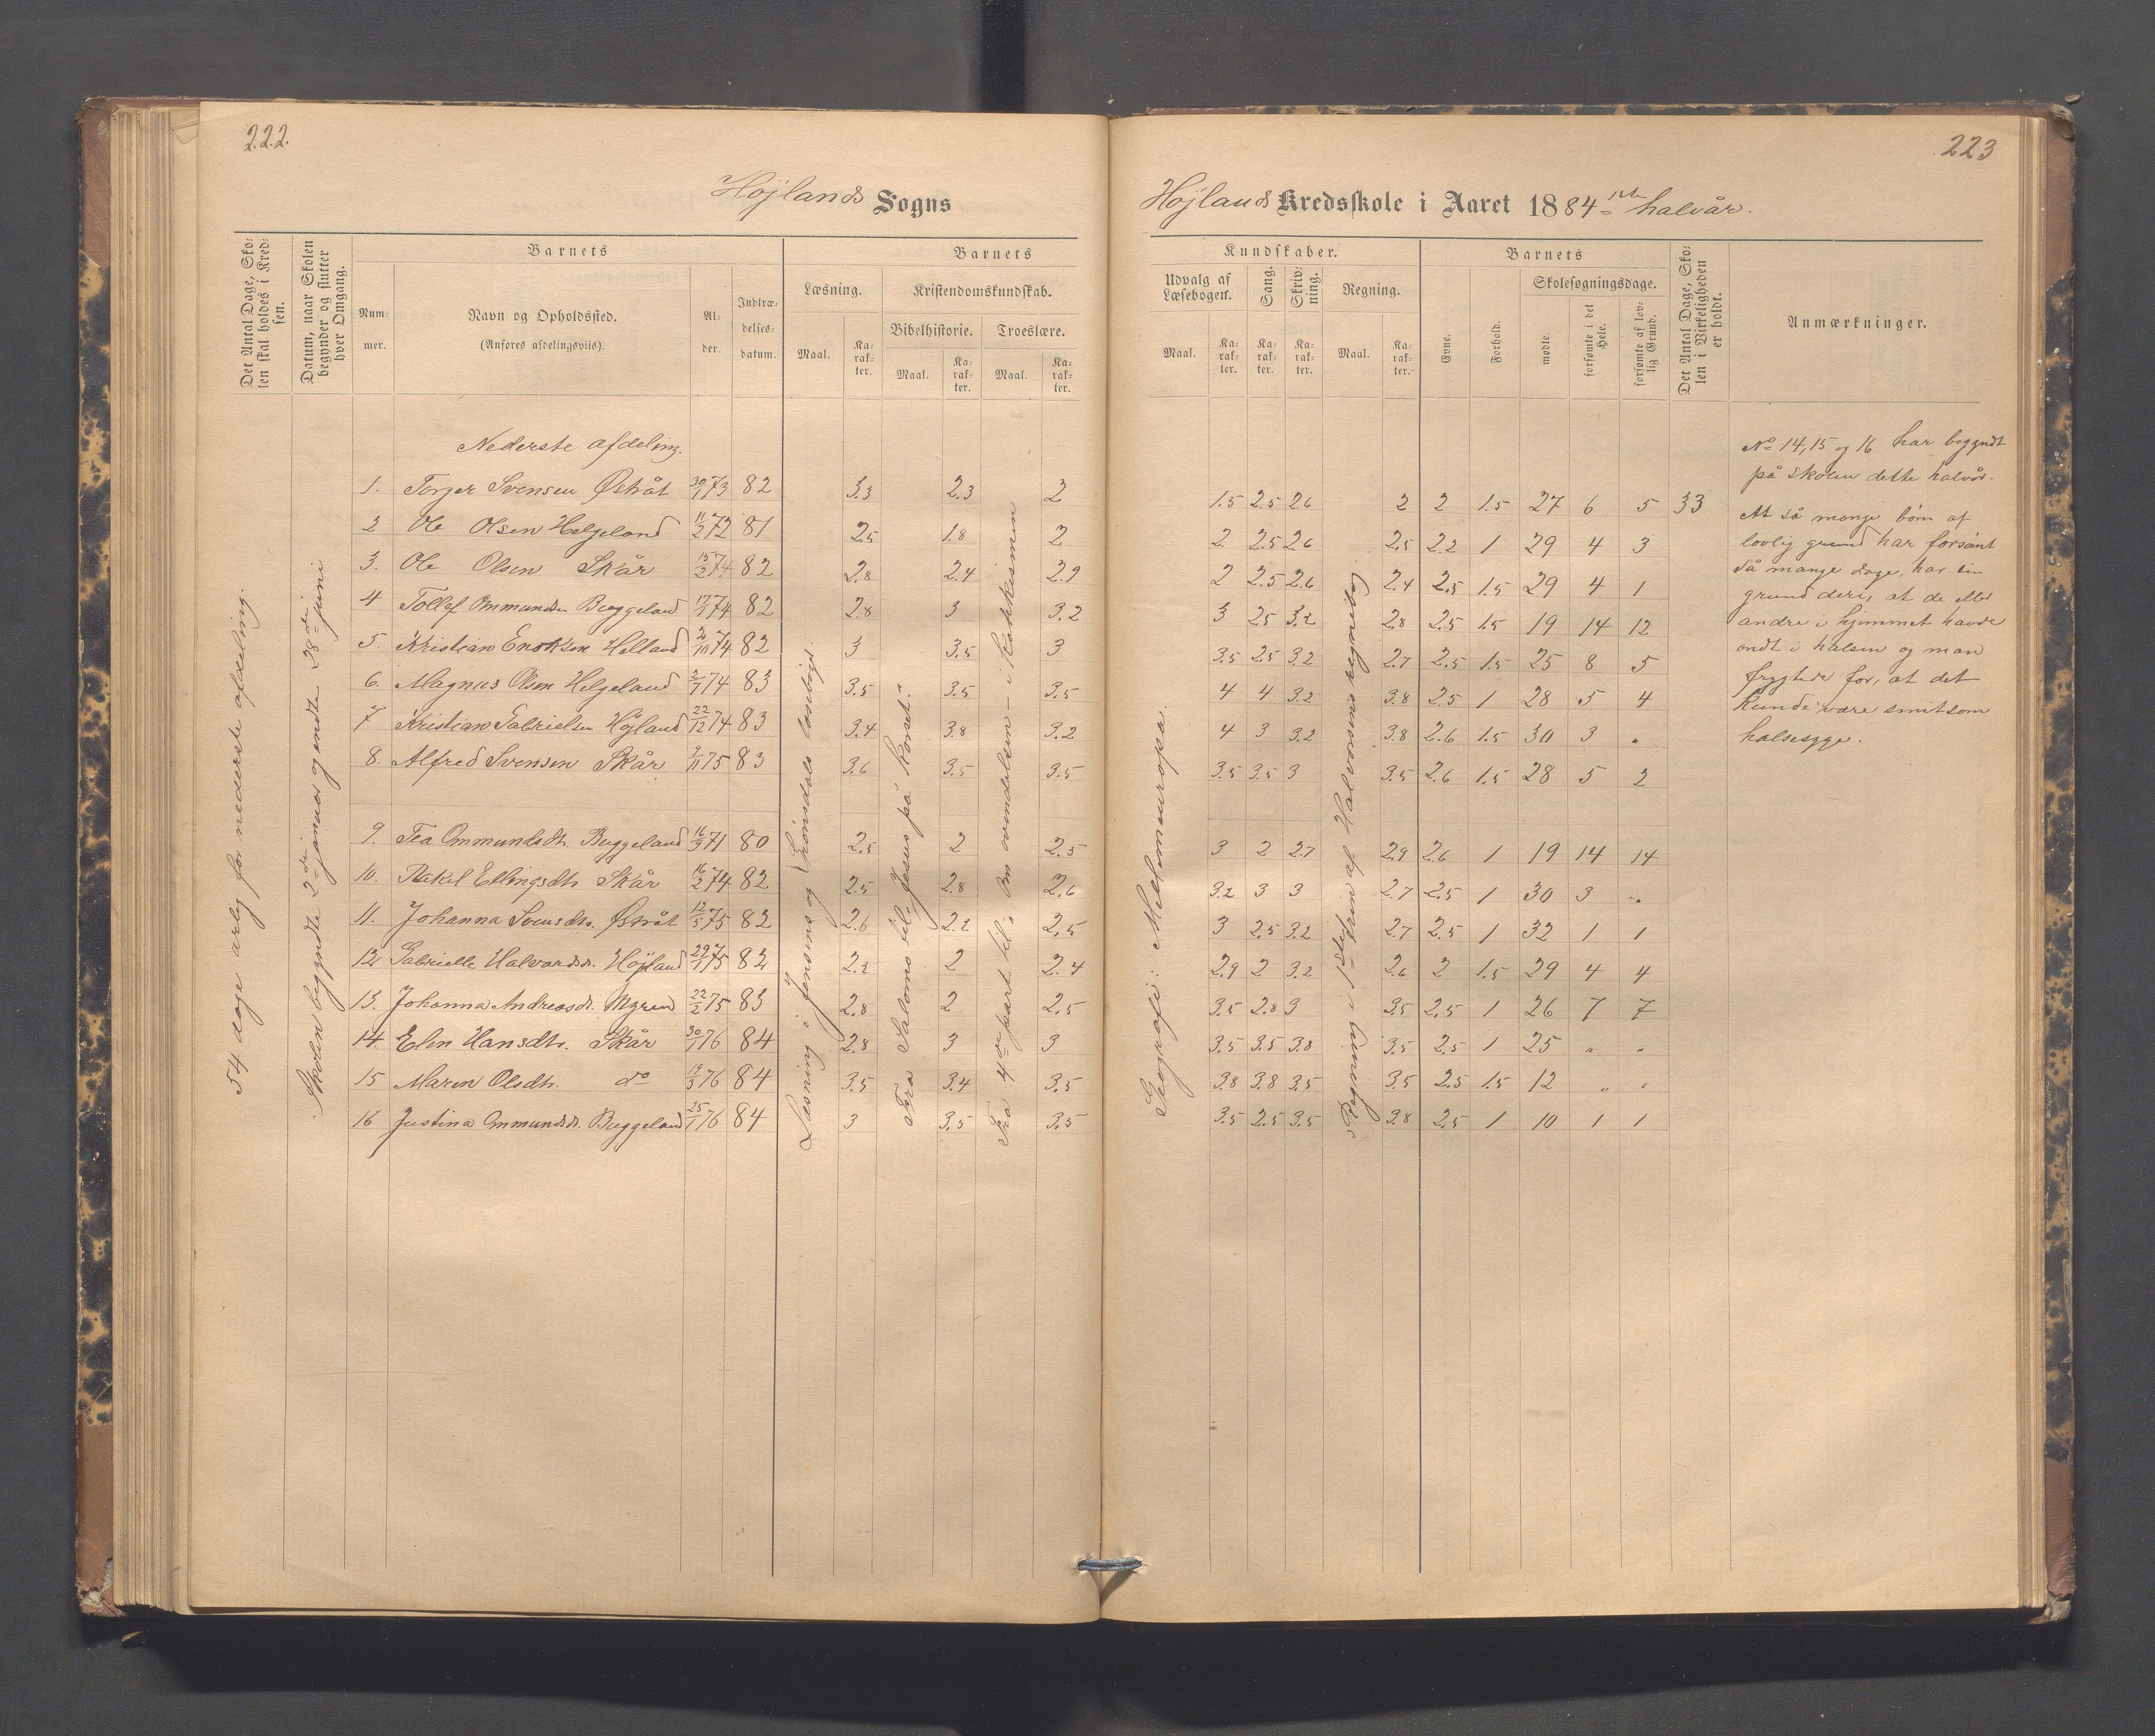 222.
Højlands Sogns
Det Antal Dage, Sko-
len skal holdes i Kred-
sen.
Datum, naar Skolen
begynder og slutter
hver Omgang.
Barnets
Num-
mer.
Navn og Opholdssted.
(Anføres afdelingsviis).
Al-
der.
Indtræ-
delses-
datum.
Barnets
Læsning.
Kristendomskundskab.
Bibelhistorie. Troeslære.
Maal. Ka-
rak-
ter.
Maal. Ka-
rak-
ter.
Maal. Ka-
rak-
ter.
54 dage årlig for nederste afdeling.
Skolen begyndte 2den januar og endte 28de juni
Læsning i Jensens og læsebog.
Fra Salomo til „Jesus på korset."
Fra 4de part til: Om ovendelsen – i katekismen
Nederste afdeling.
1. Torger Svensen Østråt 30/1 73 82 3.3 2.3 2
2 Ole Olsen Helgeland 11/2 72 81 2.5 1.8 2
3. Ole Olsen Skår 15/2 74 82 2.8 2.4 2.9
4 Tollef Ommundsen Buggeland 17/1 74 82 2.8 3 3.2
5. Kristian Enoksen Helland 2/10 74 82 3 3.5 3
6. Magnus Olsen Helgeland 2/7 74 83 3.5 3.5 3.5
7 Kristian Gabrielsen Højland 22/12 74 83 3.4 3.8 3.2
8. Alfred Svensen Skår 2/11 75 83 3.6 3.5 3.5
9. Tea Ommundsdtr. Buggeland 16/9 71 80 2.5 2 2.5
10. Rakel Ellingsdtr. Skår 16/2 74 82 2.5 2.8 2.6
11. Johanna Svensdtr. Østråt 12/5 75 82 2.6 2.2 2.5
12 Gabrielle Halvorsdtr. Højland 29/1 75 82 2.2 2 2.4
13. Johanna Andreasdtr. Myren 22/2 75 83 2.8 2 2.5
14. Elen Hansdtr. Skår 30/1 76 84 2.8 3 3
15 Maren Olsdtr. do 19/3 76 84 3.5 3.4 3.5
16 Justina Ommundsdtr. Buggeland 25/1 76 84 3 3.5 3.5
223
Højlands Kredsskole i Aaret 1884 – 1ste halvår.
Kundskaber.
Udvalg af
Læsebogen.
Sang.
Skriv-
ning.
Regning.
Maal. Ka-
rak-
ter.
Ka-
rak-
ter.
Ka-
rak-
ter.
Maal. Ka-
rak-
ter.
Barnets
Evne.
Forhold.
Skolesøgningsdage.
mødte.
forsømte i det
Hele.
forsømte af lov-
lig Grund.
Det Antal Dage, Sko-
len i Virkeligheden
er holdt.
Anmærkninger.
Geografi: Mellemeuropa.
Regning i 1ste trin af Halvorsens regnebog.
1.5 2.5 2.6 2 2 1.5 27 6 5 33
2 2.5 2.6 2.5 2.2 1 29 4 3
2 2.5 2.6 2.4 2.5 1.5 29 4 1
3 2.5 3.2 2.8 2.5 1.5 19 14 12
3.5 2.5 3.2 2.7 2.5 1.5 25 8 5
4 4 3.2 3.8 2.5 1 28 5 4
4 3 3.2 3.8 2.6 1.5 30 3 "
3.5 3.5 3 3.5 2.6 1.5 28 5 2
3 2 2.7 2.9 2.6 1 19 14 14
3.2 3 3 2.7 2.5 1 30 3 "
3 2.5 3.2 2.7 2.5 1 32 1 1
2.9 2 3.2 2.6 2 1.5 29 4 4
3.5 2.8 3 3.5 2.5 1 26 7 7
3.5 3.5 3.8 3.5 2.5 1 25 " "
3.8 3.8 3.5 3.5 2.5 1.5 12 " "
3.5 2.5 3.5 3.8 2.5 1 10 1 1
No 14, 15 og 16 har begyndt
på skolen dette halvår.
At så mange børn af
lovlig grund har forsømt
så mange dage, har sin
grund deri, at de eller
andre i hjemmet havde
ondt i halsen og man
frygtede for, at det
kunde være smitsom
halsesyge.